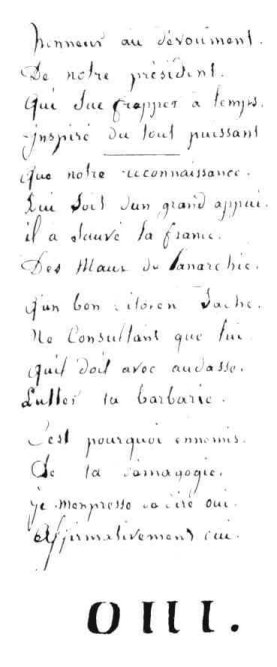 honneur au dévoument.
De notre président.
Qui sut frapper à temps.
inspiré du tout puissant
que notre reconnaissance.
Lui soit d'un grand appui.
il a sauvé la france.
Des Maux de lanarchie.
qun bon citoien sache.
Ne Consultant que lui.
quil doit avec audasse.
Lutter la barbarie.
C'est pourquoi ennemis.
De la demagogie.
je menpresse oui.
Affirmativement oui.
OIII.